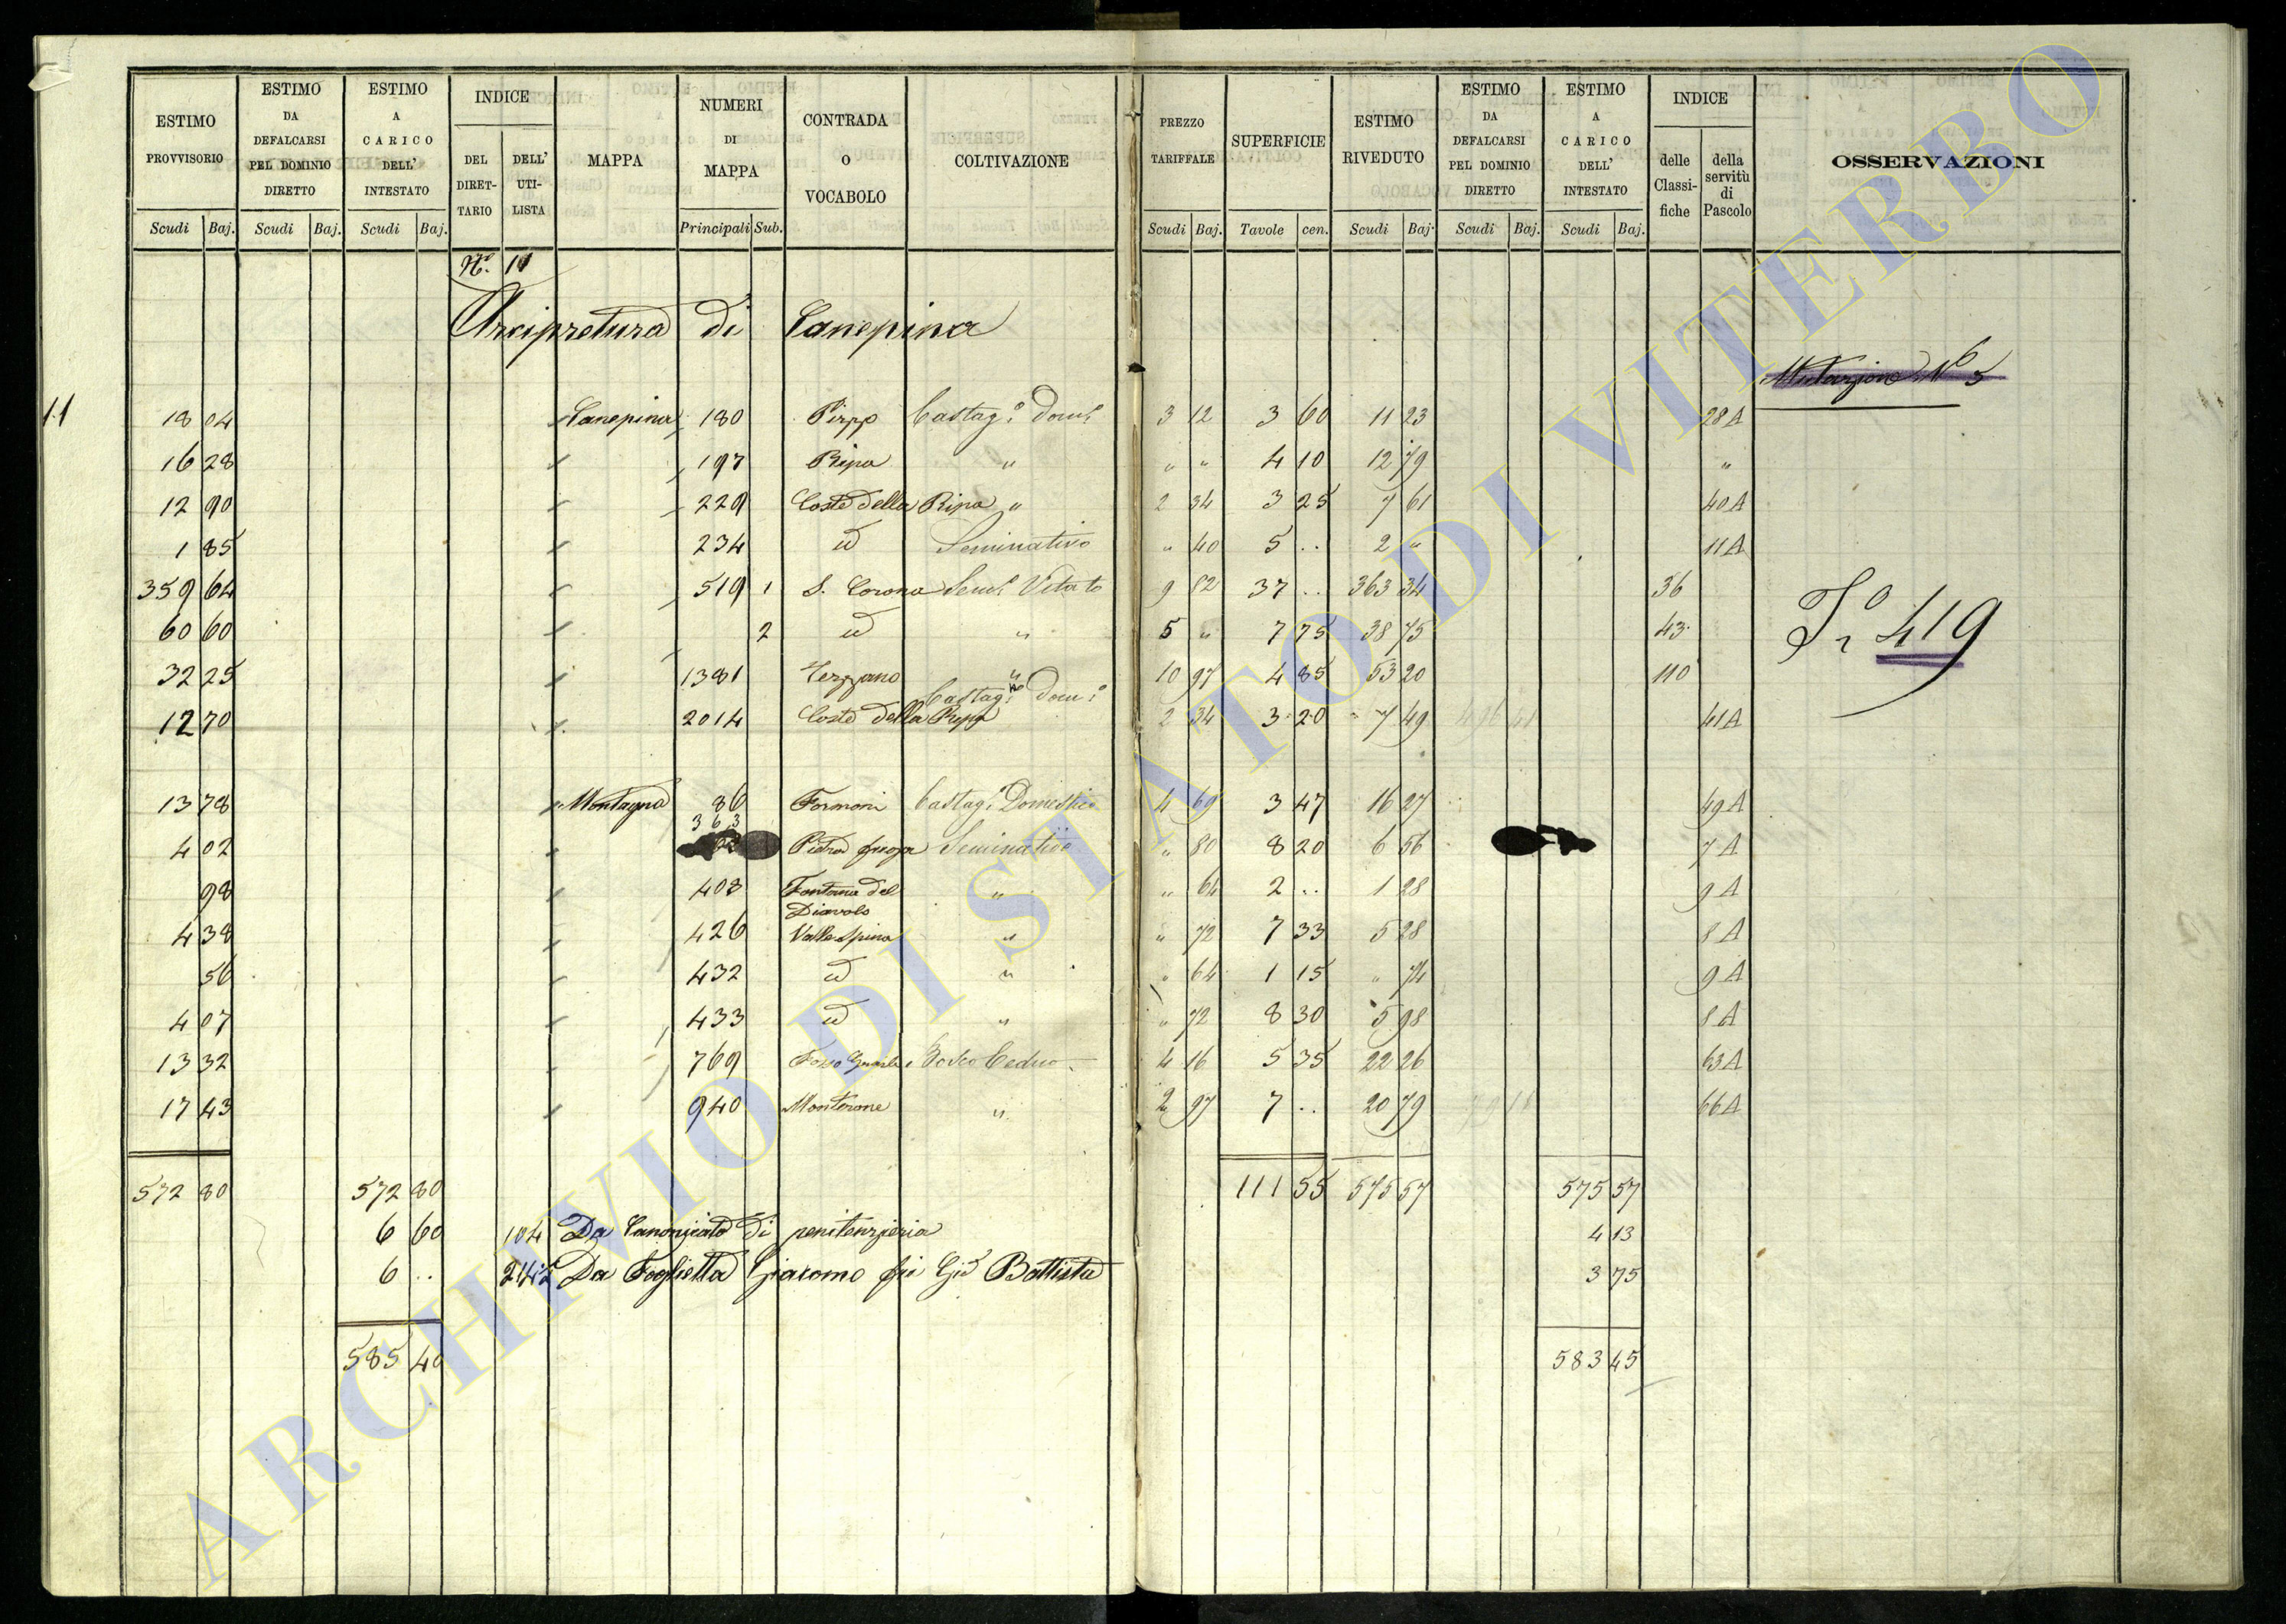 ESTIMO PROVVISORIO
Scudi Baj.
ESTIMO DA DEFALCARSI PEL DOMINIO DIRETTO
Scudi Baj.
ESTIMO A CARICO DELL' INTESTATO
Scudi Baj.
INDICE
DEL DIRET- TARIO
DELL' UTI- LISTA
MAPPA
NUMERI DI MAPPA
Principali Sub.
CONTRADA O VOCABOLO
COLTIVAZIONE
PREZZO TARIFFALE
Scudi Baj.
SUPERFICIE
Tavole cen.
ESTIMO RIVEDUTO
Scudi Baj.
ESTIMO DA DEFALCARSI PEL DOMINIO DIRETTO
Scudi Baj.
ESTIMO A CARICO DELL' INTESTATO
Scudi Baj.
INDICE
delle Classi- fiche
della servitù di Pascolo
OSSERVAZIONI
No. 11
Arcipretura di Canepina
Mutazione N° 5
6
11
18 04 Canepina 180 Pirpp Castag.o Dom.o 3 12 3 60 11 23 28 A
16 28 197 Ripa " " " 4 10 12 79 "
12 90 229 Coste della Ripa " 2 34 3 25 7 61 40 A
1 85 234 id Seminativo " 40 5 .. 2 " 11 A
359 64 519 1 S. Corona Sem.o Vitato 9 82 37 .. 363 34 36
60 60 2 id " 5 " 7 75 38 75 43
Fo 419
32 25 1381 Terzano " 10 97 4 85 53 20 110
12 70 2014 Coste della Ripa Castag.o Dom.o 2 34 3 20 7 49 496 41 41 A
13 78 Montagna 86 Formoni Castag.o Domestico 4 69 3 47 16 27 49 A
363
4 02 Pietra Seminativo " 80 8 20 6 56 7 A
98 408 Fontana del Diavolo " " 64 2 .. 1 28 9 A
4 38 426 Valle Spina " " 72 7 33 5 28 8 A
56 432 id " " 64 1 15 " 74 9 A
4 07 433 id " " 72 8 30 5 98 8 A
13 32 769 Fosso Bosco Ceduo 4 16 5 35 22 26 63 A
17 43 940 Monterone " 2 97 7 .. 20 79 79 16 66 A
572 80 572 80 111 55 575 57 575 57
6 60 104 Da Canonicato di penitenzieria 4 13
6 .. 242 Da Foglietta Giacomo fu Gio Battista 3 75
585 40 583 45
ARCHIVIO DI STATO DI VITERBO